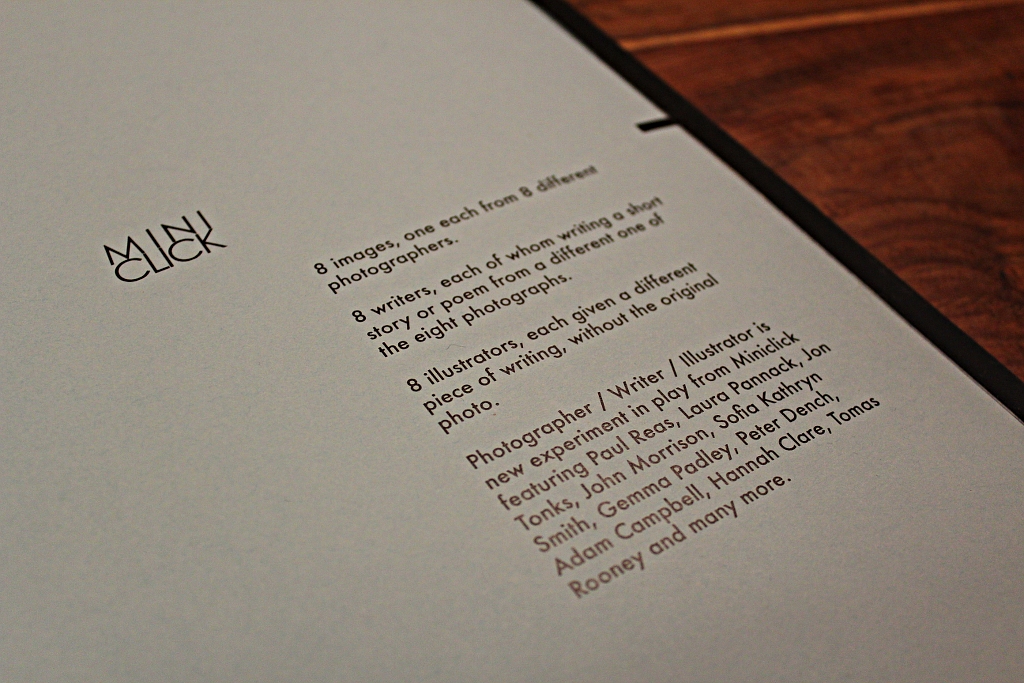 MINI
CLICK
8 images, one each from 8 different
photographers.
8 writers, each of whom writing a short
story or poem from a different one of
the eight photographs.
8 illustrators, each given a different
piece of writing, without the original
photo.
Photographer / Writer / Illustrator is
new experiment in play from Miniclick
featuring Paul Reas, Laura Pannack, Jon
Tonks, John Morrison, Sofia Kathryn
Smith, Gemma Padley, Peter Dench,
Adam Campbell, Hannah Clare, Tomas
Rooney and many more.